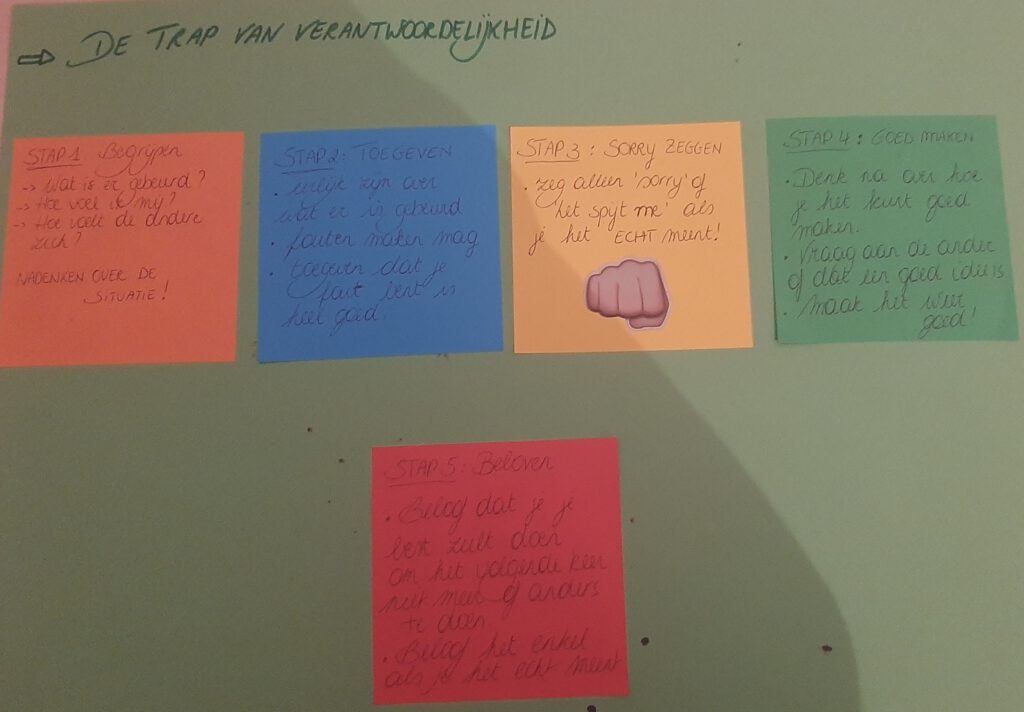 ⇒ DE TRAP VAN VERANTWOORDELIJKHEID
STAP 1 Begrijpen
-> Wat is er gebeurd?
-> Hoe voel ik mij?
-> Hoe voelt de andere
zich?
NADENKEN OVER DE
SITUATIE!
STAP 2: TOEGEVEN
• eerlijk zijn over
wat er is gebeurd
• fouten maken mag
• toegeven dat je
fout bent is
heel goed.
STAP 3: SORRY ZEGGEN
• zeg alleen 'sorry' of
'het spijt me' als
je het ECHT meent!
STAP 4: GOED MAKEN
• Denk na over hoe
je het kunt goed
maken.
• Vraag aan de ander
of dat een goed idee is
• Maak het weer
goed!
STAP 5: Beloven
• Beloof dat je je
best zult doen
om het volgende keer
niet meer of anders
te doen
• Beloof het enkel
als je het echt meent